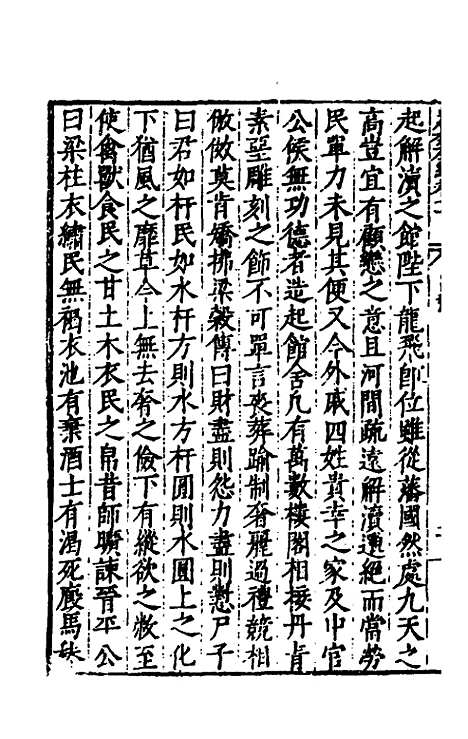 起解瀆之館陛下龍飛即位雖從藩國然處九天之
高豈宜有顧戀之意且河間疏遠解瀆邈絕而當勞
民單力未見其便又今外戚四姓貴幸之家及中官
公侯無功德者造起館舍凡有萬數樓閣相接丹青
素堊雕刻之飾不可單言喪葬踰制奢麗過禮競相
倣做莫肯矯拂梁榖傳曰財盡則怨力盡則懟尸子
曰君如杅民如水杅方則水方杅圓則水圓上之化
下猶風之靡草今上無去奢之儉下有縱欲之敝至
使禽獸食民之甘土木衣民之帛昔師曠諫晉平公
曰梁柱衣繡民無褐衣池有棄酒士有渴死廄馬秣